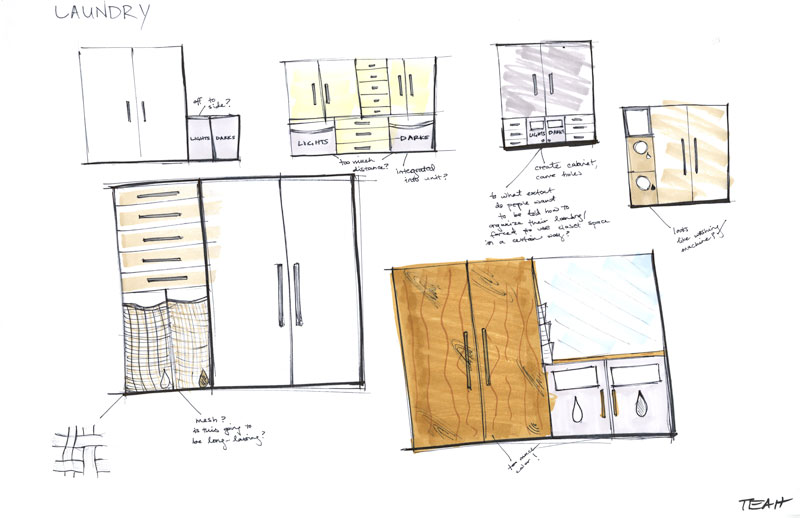 LAUNDRY
off to
side?
LIGHTS
DARKS
LIGHTS
DARKS
too much
distance?
integrated
into unit?
LIGHTS
DARKS
create cabinet,
carve holes
to what extent
do people want
to be told how to
organize their laundry/
forced to use closet space
in a certain way?
looks
like washing
machine?
mesh?
is this going to
be long-lasing?
too much
color!
TEAH